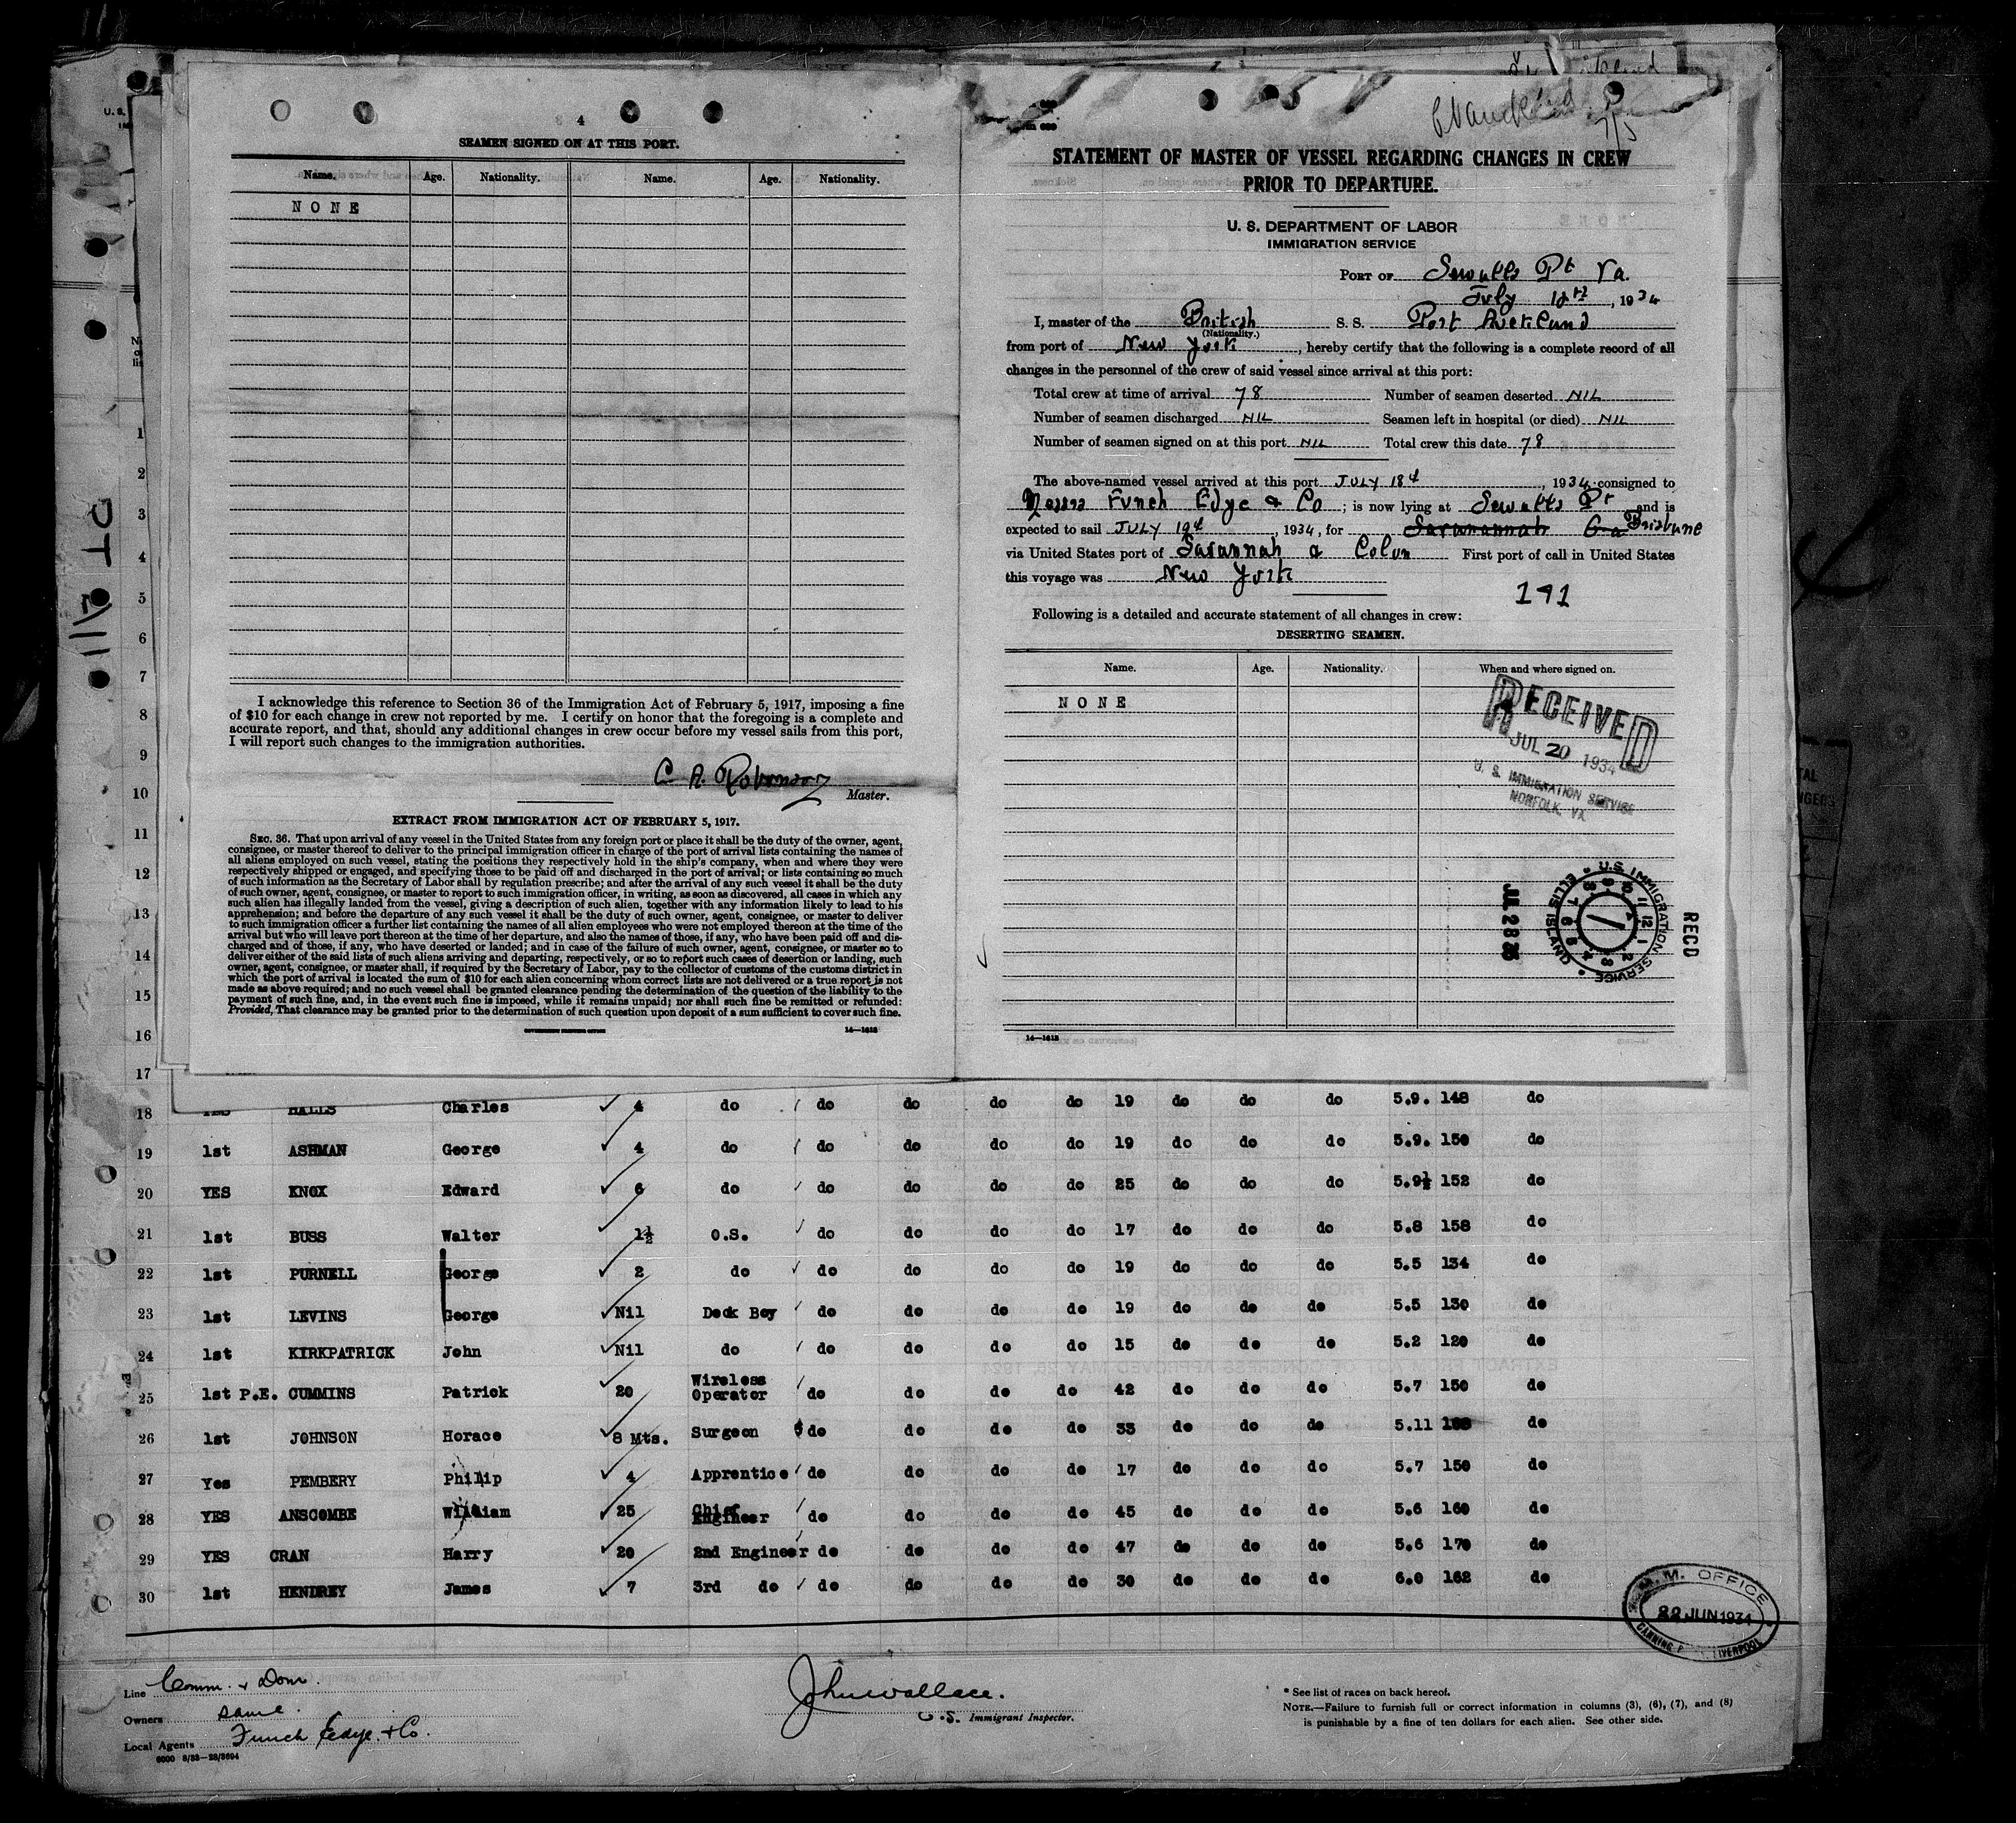 4
SEAMEN SIGNED ON AT THIS PORT.
Name. Age. Nationality. Name. Age. Nationality.
NONE
I acknowledge this reference to Section 36 of the Immigration Act of February 5, 1917, imposing a fine
of $10 for each change in crew not reported by me. I certify on honor that the foregoing is a complete and
accurate report, and that, should any additional changes in crew occur before my vessel sails from this port,
I will report such changes to the immigration authorities.
C. A. Robinson
Master.
EXTRACT FROM IMMIGRATION ACT OF FEBRUARY 5, 1917.
SEC. 36. That upon arrival of any vessel in the United States from any foreign port or place it shall be the duty of the owner, agent,
consignee, or master thereof to deliver to the principal immigration officer in charge of the port of arrival lists containing the names of
all aliens employed on such vessel, stating the positions they respectively hold in the ship's company, when and where they were
respectively shipped or engaged, and specifying those to be paid off and discharged in the port of arrival; or lists containing so much
of such information as the Secretary of Labor shall by regulation prescribe; and after the arrival of any such vessel it shall be the duty
of such owner, agent, consignee, or master to report to such immigration officer, in writing, as soon as discovered, all cases in which any
such alien has illegally landed from the vessel, giving a description of such alien, together with any information likely to lead to his
apprehension; and before the departure of any such vessel it shall be the duty of such owner, agent, consignee, or master to deliver
to such immigration officer a further list containing the names of all alien employees who were not employed thereon at the time of the
arrival but who will leave port thereon at the time of her departure, and also the names of those, if any, who have been paid off and dis-
charged and of those, if any, who have deserted or landed; and in case of the failure of such owner, agent, consignee, or master so to
deliver either of the said lists of such aliens arriving and departing, respectively, or so to report such cases of desertion or landing, such
owner, agent, consignee, or master shall, if required by the Secretary of Labor, pay to the collector of customs of the customs district in
which the port of arrival is located the sum of $10 for each alien concerning whom correct lists are not delivered or a true report is not
made as above required; and no such vessel shall be granted clearance pending the determination of the question of the liability to the
payment of such fine, and, in the event such fine is imposed, while it remains unpaid; nor shall such fine be remitted or refunded:
Provided, That clearance may be granted prior to the determination of such question upon deposit of a sum sufficient to cover such fine.
GOVERNMENT PRINTING OFFICE 14—1613
STATEMENT OF MASTER OF VESSEL REGARDING CHANGES IN CREW
PRIOR TO DEPARTURE.
U. S. DEPARTMENT OF LABOR
IMMIGRATION SERVICE
PORT OF Sewalls Pt Va.
July 18th, 1934
I, master of the British S. S. Port Auckland
(Nationality.)
from port of New York, hereby certify that the following is a complete record of all
changes in the personnel of the crew of said vessel since arrival at this port:
Total crew at time of arrival 78 Number of seamen deserted NIL
Number of seamen discharged NIL Seamen left in hospital (or died) NIL
Number of seamen signed on at this port NIL Total crew this date 78
The above-named vessel arrived at this port JULY 18th, 1934, consigned to
Messrs Funch Edye & Co; is now lying at Sewalls Pt and is
expected to sail JULY 19th, 1934, for Savannah Ga Brisbane
via United States port of Savannah & Colon First port of call in United States
this voyage was New York
191
Following is a detailed and accurate statement of all changes in crew:
DESERTING SEAMEN.
Name. Age. Nationality. When and where signed on.
NONE
RECEIVED
JUL 20 1934
U. S. IMMIGRATION SERVICE
NORFOLK, VA
REC'D
U.S. IMMIGRATION SERVICE
ELLIS ISLAND
14—1613
1
2
3
4
5
6
7
8
9
10
11
12
13
14
15
16
17
18 YES HALLS Charles 4 do do do do do 19 do do do 5.9. 148 do
19 1st ASHMAN George 4 do do do do do 19 do do do 5.9. 150 do
20 YES KNOX Edward 6 do do do do do 25 do do do 5.9½ 152 do
21 1st BUSS Walter 1½ O.S. do do do do 17 do do do 5.8 158 do
22 1st PURNELL George 2 do do do do do 19 do do do 5.5 134 do
23 1st LEVINS George Nil Deck Boy do do do do 19 do do do 5.5 130 do
24 1st KIRKPATRICK John Nil do do do do do 15 do do do 5.2 120 do
25 1st P.E. CUMMINS Patrick 20 Wireless Operator do do do do 42 do do do 5.7 150 do
26 1st JOHNSON Horace 8 Mts. Surgeon do do do do 33 do do do 5.11 do
27 Yes PEMBERY Philip 4 Apprentice do do do do 17 do do do 5.7 150 do
28 YES ANSCOMBE William 25 Chief Engineer do do do do 45 do do do 5.6 160 do
29 YES CRAN Harry 20 2nd Engineer do do do do 47 do do do 5.6 170 do
30 1st HENDREY James 7 3rd do do do do do 30 do do do 6.0 162 do
M.M. OFFICE
22 JUN 1934
LIVERPOOL
Line Comm. & Dom.
Owners same.
Local Agents Funch Edye. & Co.
6000 8/33—28/3694
John Wallace.
U.S. Immigrant Inspector.
* See list of races on back hereof.
NOTE.—Failure to furnish full or correct information in columns (3), (6), (7), and (8)
is punishable by a fine of ten dollars for each alien. See other side.